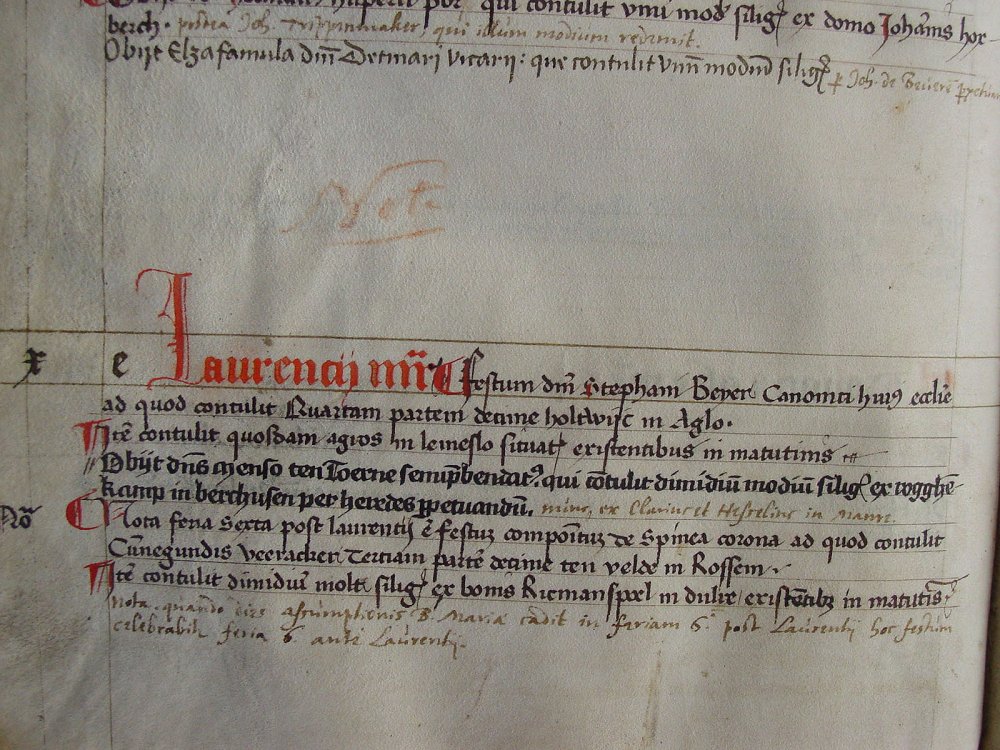 qui contulit vnu mod siligꝭ ex domo Johannis hor-
berch. postea Joh. Trippenmaker, qui illum modium redemit.
Obijt Elza famula dni Detmari vicarij: que contulit vnu modiu siligꝭ p Joh. de
Nota
x e Laurencij mris Festum dni Stephani Beyer Canonici huiꝰ ecclie
ad quod contulit Quartam partem decime holtwijc in Aglo.
Ite contulit quosdam agros in lemeslo situatꝭ existentibus in matutinis
Obijt dns Menso ten Toerne semipbendatꝰ. qui cotulit dimidiu modiu siligꝭ ex rogghe
kamp in berchusen per heredes ppetuandu. nunc, ex
No Nota feria Sexta post laurencij e festu compoitu de Spinea corona ad quod contulit
Cunegundis Veeracker Terciam parte decime ten velde in Rossem
Ite contulit dimidiu molt siligꝭ ex bonis Riemanspoel in dulre existetibꝫ in matutis
Nota. quando dies assumptionis B. Mariæ cadit in feriam 6ª post Laurentij hoc festum
celebrabitur feria 6. ante Laurentij.